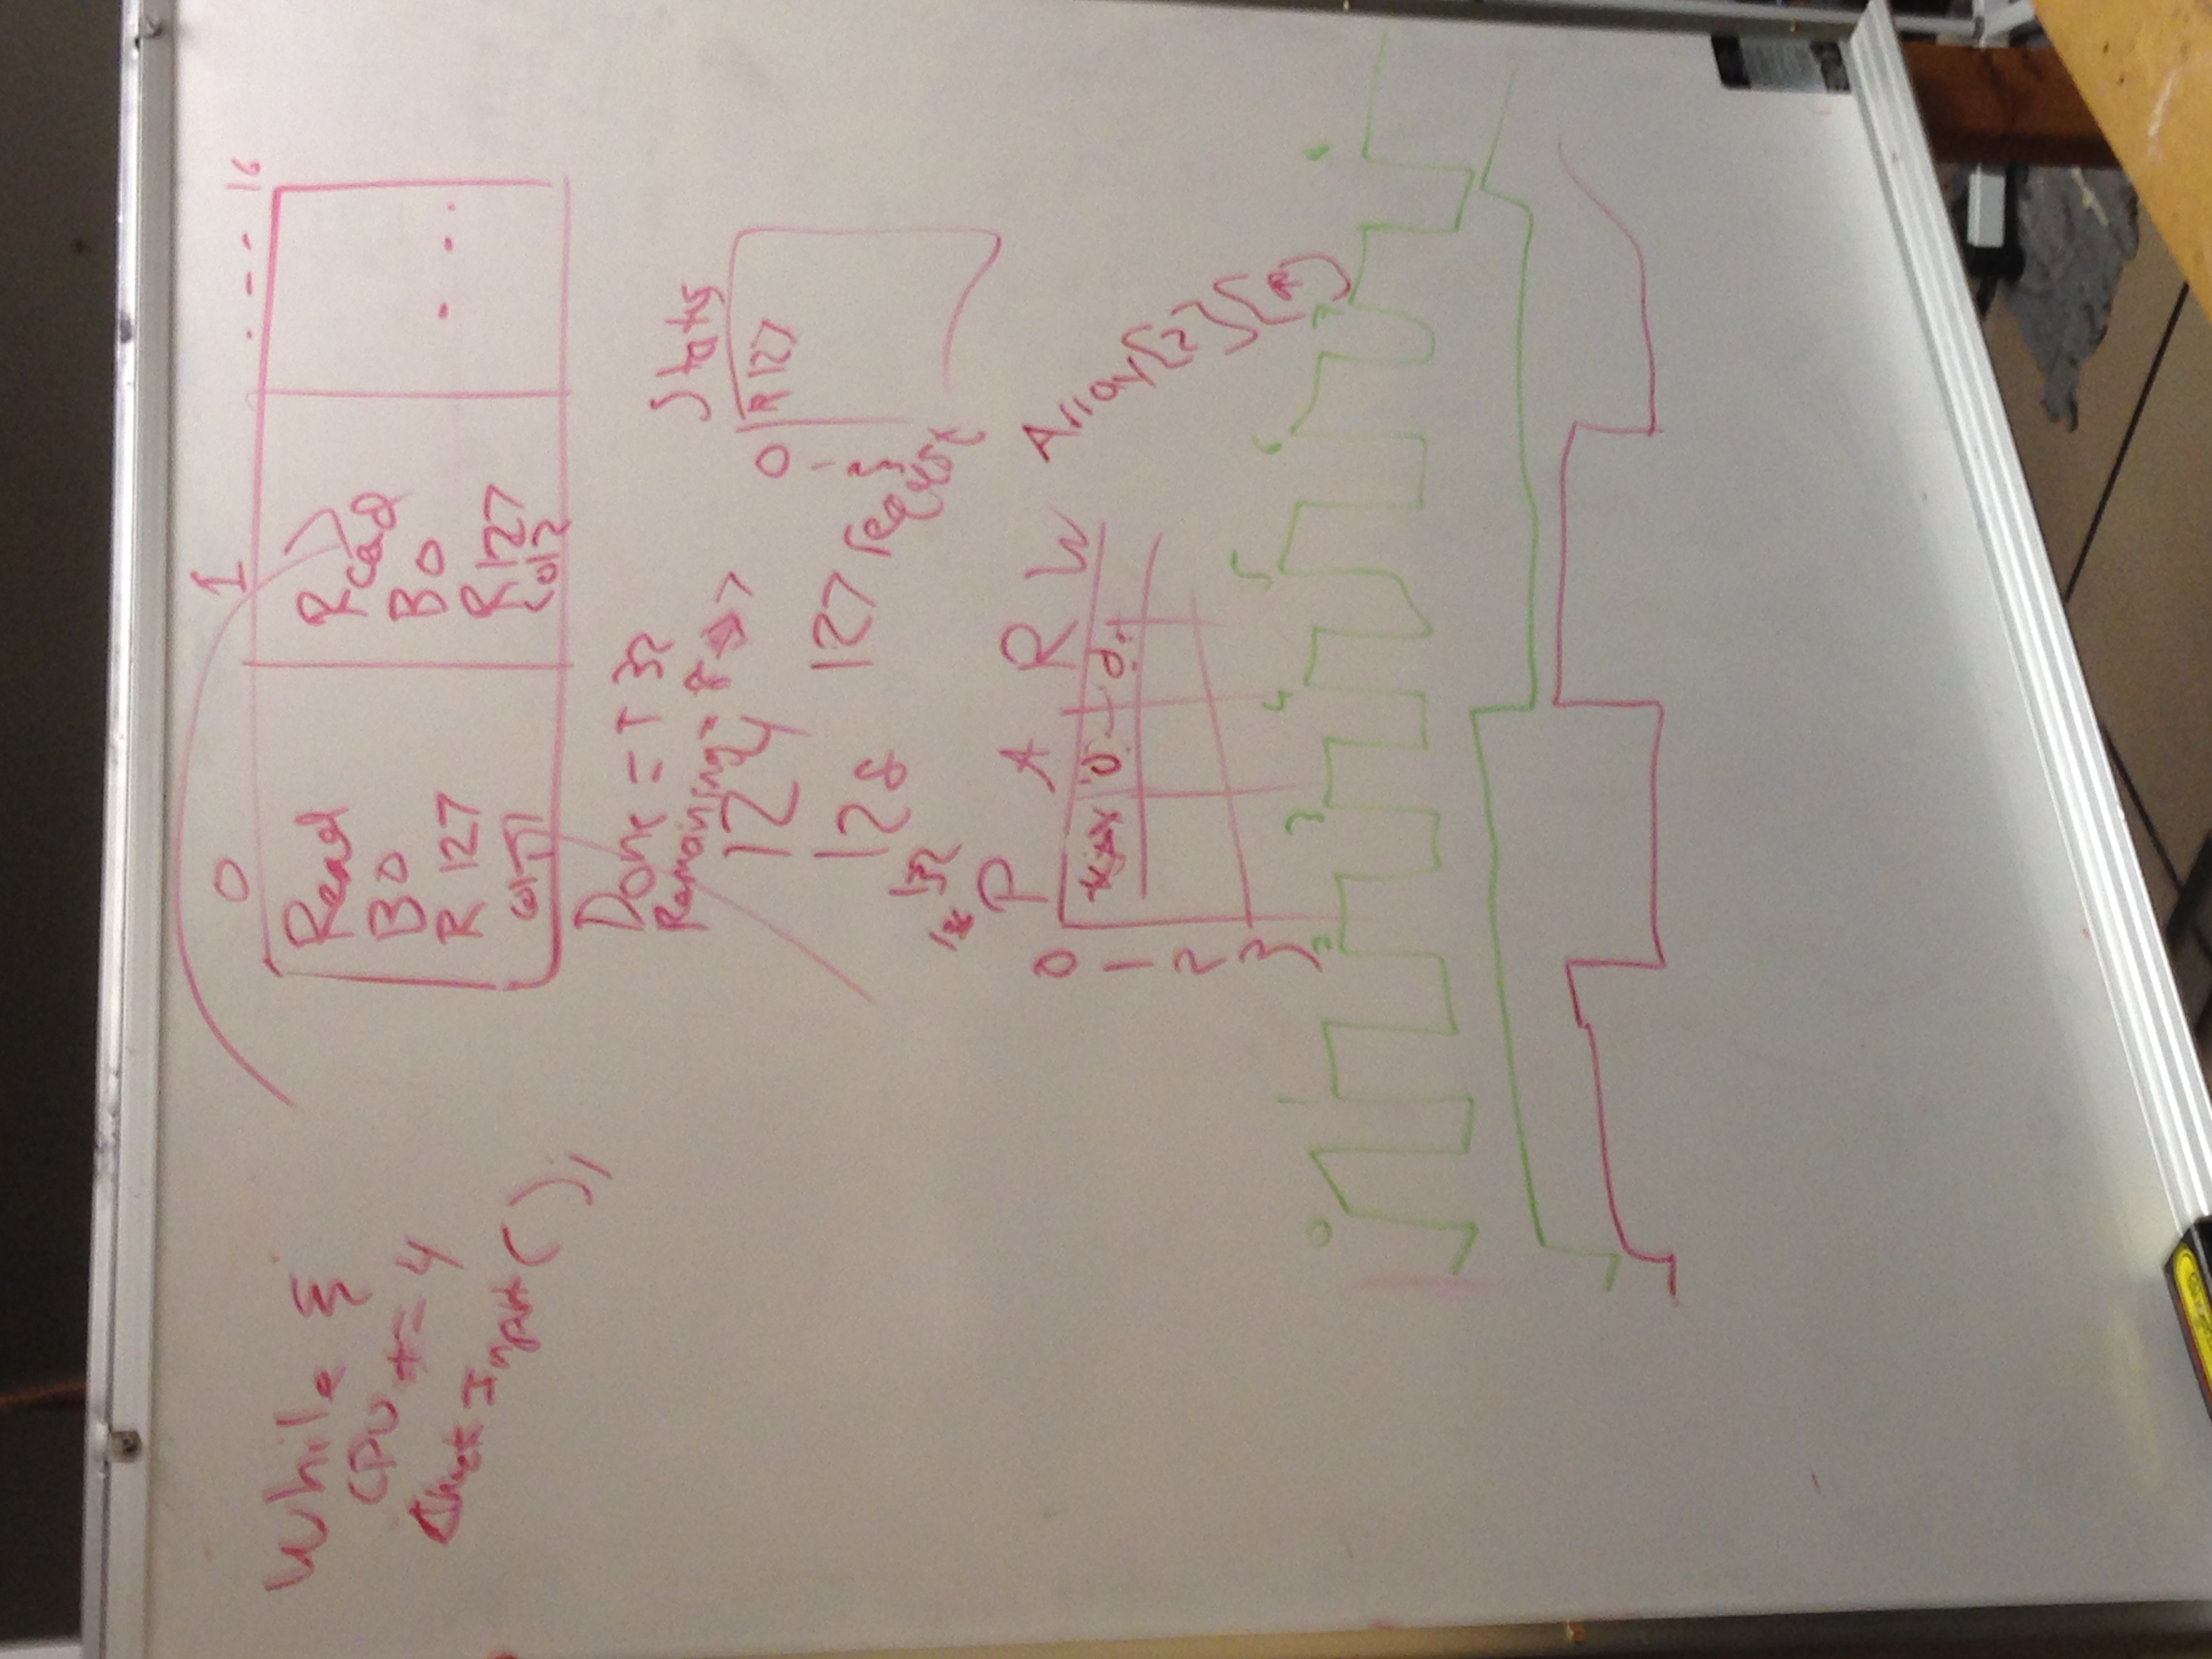 While {
CPU += 4
Check Input ( );
0 1 - - - 16
Read
B0
R 127
Read
B0
R127
Col2
. . .
Done = T 32
Remaining =
124
128
127 request
132
Status
0 R 127
1
2
3
P A R W
0
1
2
3
Array[2][
0 1 2 3 4 5 6 7